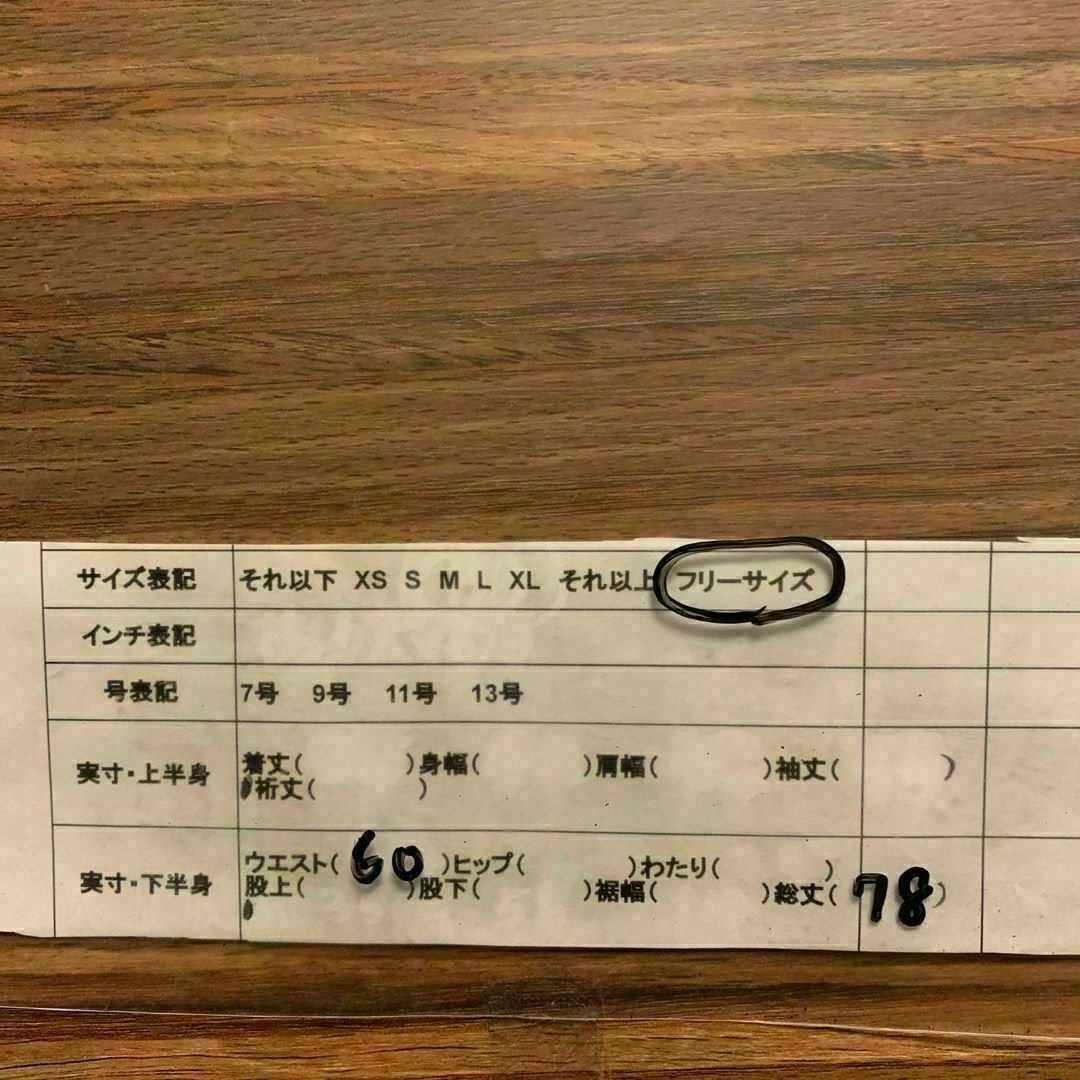 サイズ表記 それ以下 XS S M L XL それ以上 フリーサイズ
インチ表記
号表記 7号 9号 11号 13号
実寸・上半身 着丈( )身幅( )肩幅( )袖丈( )
裄丈( )
実寸・下半身 ウエスト( 60 )ヒップ( )わたり( )
股上( )股下( )裾幅( )総丈( 78 )